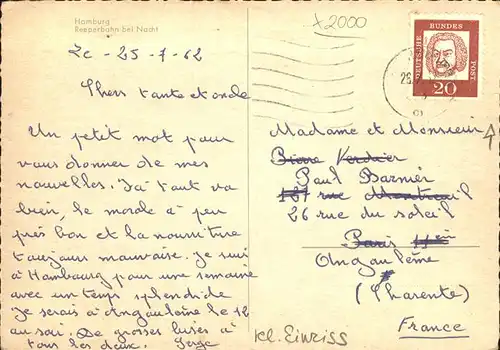 Hamburg
Reeperbahn bei Nacht
x2000
Le - 25 - 7 - 62
Chers tante et oncle
Un petit mot pour
vous donner de mes
nouvelles. Ici tout va
bien, le morale à peu
près bon et la nourriture
toujours mauvaise. Je suis
à Hambourg pour une semaine
avec un temps splendide
Je serais à Angoulème le 12
au soir. De grosses bises à
tous les deux. Serge
DEUTSCHE BUNDESPOST
20
Madame et Monsieur
Pierre Verdier
Paul Barnier
181 rue Montreuil
26 rue du soleil
Paris 11ème
Angoulème
(Charente)
France
kl. Einriss